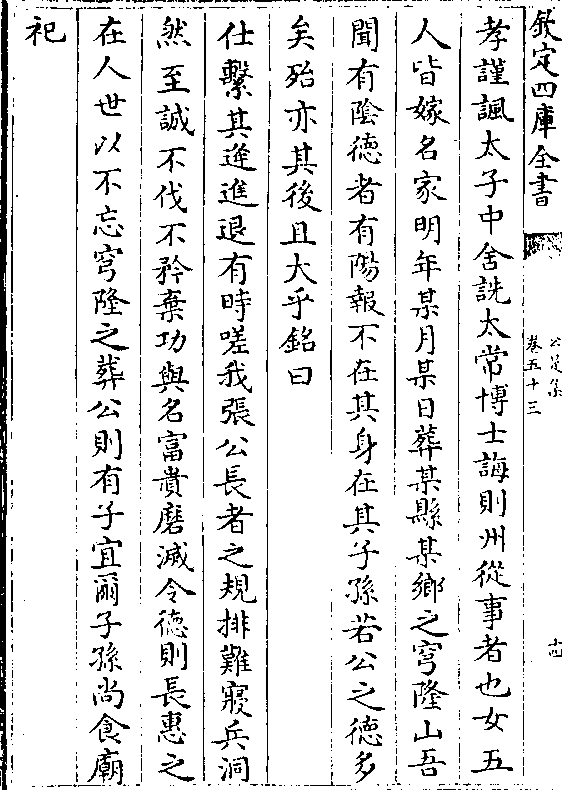 欽定四庫全書
公是集
卷五十三
十四
孝謹諷太子中舍詵太常博士誨則州從事者也女五
人皆嫁名家明年某月某日葬某縣某鄉之穹隆山吾
聞有陰徳者有陽報不在其身在其子孫若公之徳多
矣殆亦其後且大乎銘曰
仕繫其逆進退有時嗟我張公長者之規排難寢兵洞
然至誠不伐不矜棄功與名富貴磨滅令徳則長惠之
在人世以不忘穹隆之葬公則有子宜爾子孫尚食廟
祀